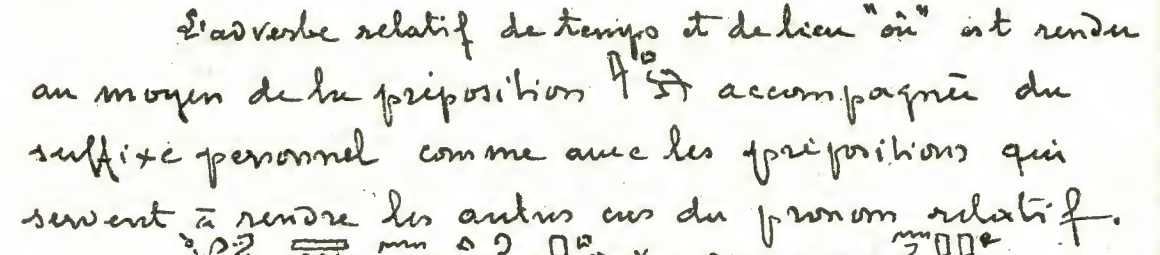 L'adverbe relatif de temps et de lieu "où" est rendu
au moyen de la préposition accompagnée du
suffixe personnel comme avec les prépositions qui
servent à rendre les autres cas du pronom relatif.